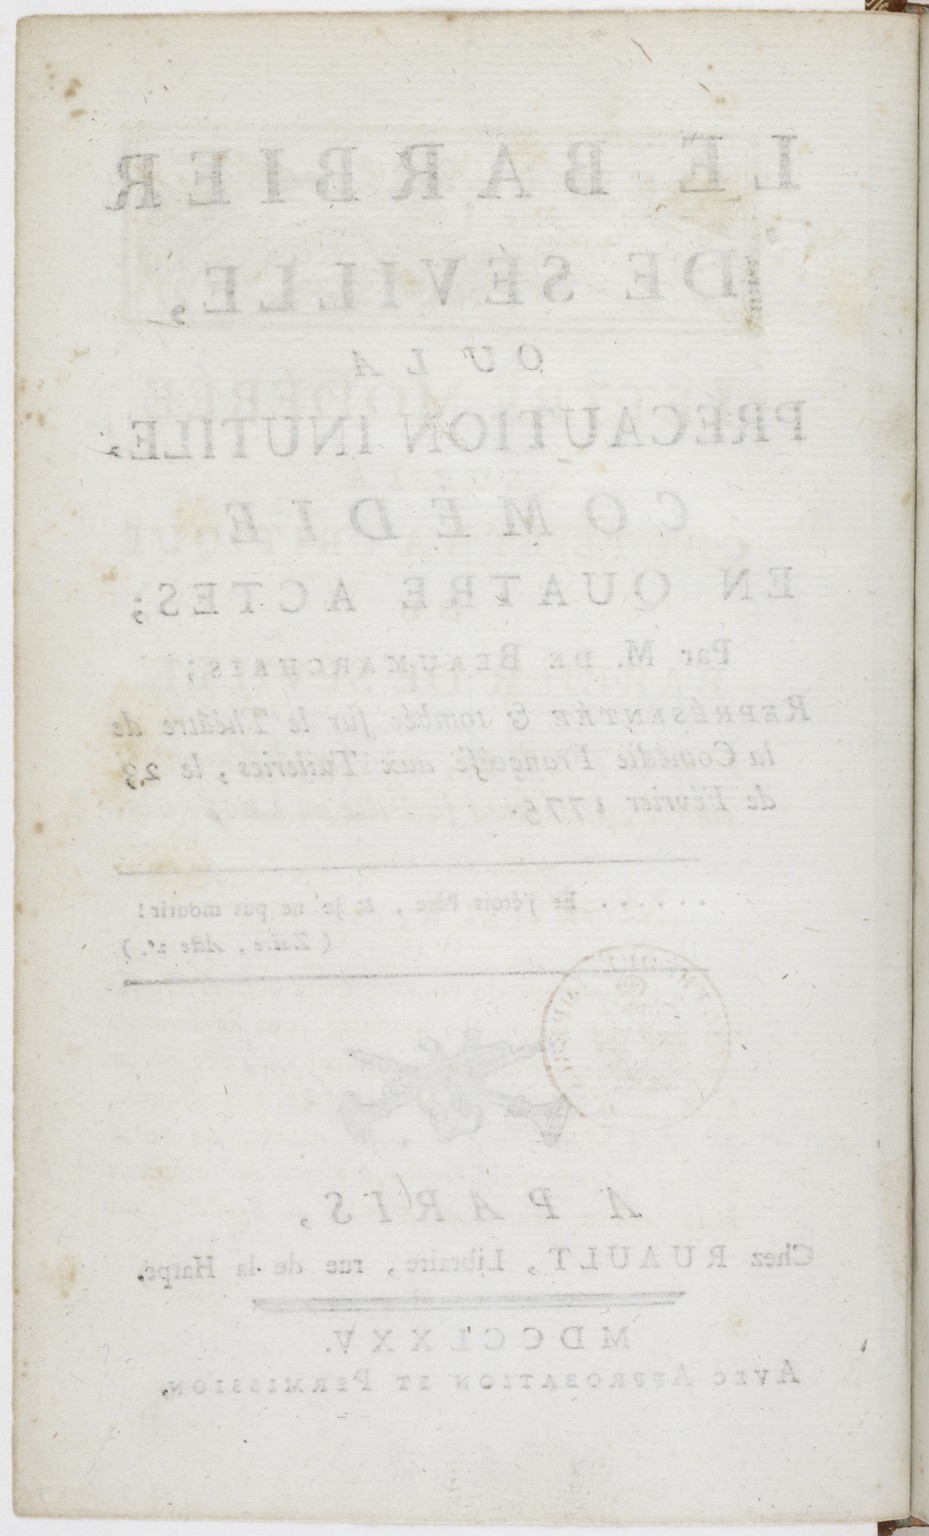 LE BARBIER
DE SÉVILLE,
OU LA
PRÉCAUTION INUTILE,
COMÉDIE
EN QUATRE ACTES;
Par M. DE BEAUMARCHAIS;
REPRÉSENTÉE & tombée sur le Théâtre de
la Comédie Françoise aux Tuileries, le 23
de Février 1775.
...... Et j'étois Père, & je ne pus mourir!
(Zaïre, Acte 2e.)
A PARIS,
Chez RUAULT, Libraire, rue de la Harpe.
MDCCLXXV.
AVEC APPROBATION ET PERMISSION.